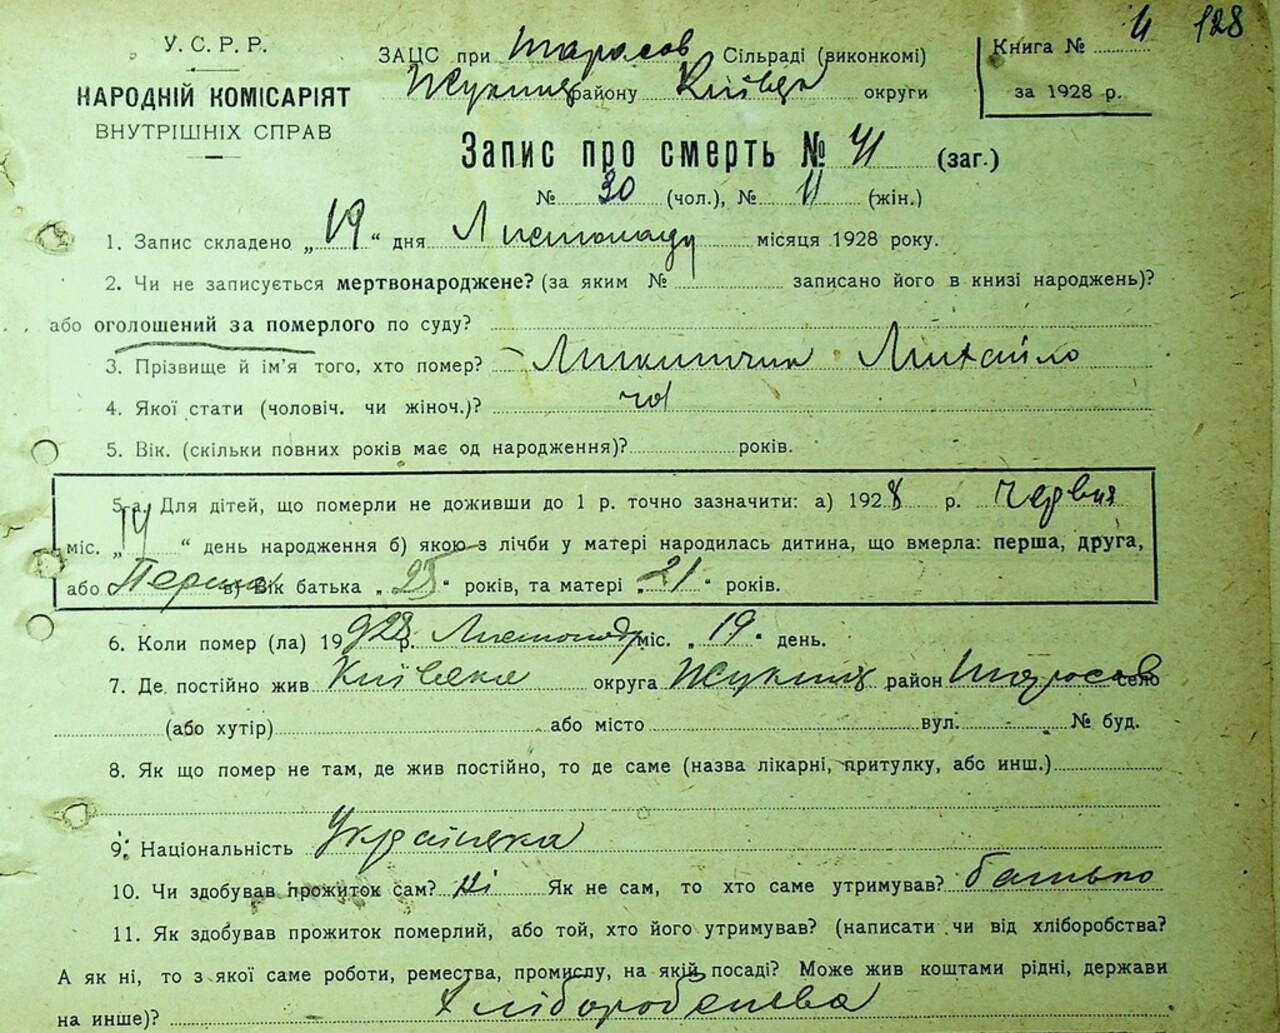 128
У. С. Р. Р.
НАРОДНІЙ КОМІСАРІЯТ
ВНУТРІШНІХ СПРАВ
ЗАЦС при Тарасов Сільраді (виконкомі)
району округи
Книга №
за 1928 р.
Запис про смерть № 41 (заг.)
№ 30 (чол.), № 11 (жін.)
1. Запис складено „19“ дня Листопаду місяця 1928 року.
2. Чи не записується мертвонароджене? (за яким № записано його в книзі народжень)?
або оголошений за померлого по суду?
3. Прізвище й ім'я того, хто помер? Михайло
4. Якої стати (чоловіч. чи жіноч.)? чол
5. Вік. (скільки повних років має од народження)? років.
5-а. Для дітей, що померли не доживши до 1 р. точно зазначити: а) 1928 р. Червня
міс. „14“ день народження б) якою з лічби у матері народилась дитина, що вмерла: перша, друга,
або Перша в) Вік батька „25“ років, та матері „21“ років.
6. Коли помер (ла) 19928 р. Листопад міс. „19“ день.
7. Де постійно жив Київська округа район Тарасов село
(або хутір) або місто вул. № буд.
8. Як що помер не там, де жив постійно, то де саме (назва лікарні, притулку, або инш.)
9. Національність Українка
10. Чи здобував прожиток сам? Ні Як не сам, то хто саме утримував? батько
11. Як здобував прожиток померлий, або той, хто його утримував? (написати чи від хліборобства?
А як ні, то з якої саме роботи, ремества, промислу, на якій посаді? Може жив коштами рідні, держави
на инше)? Хліборобства